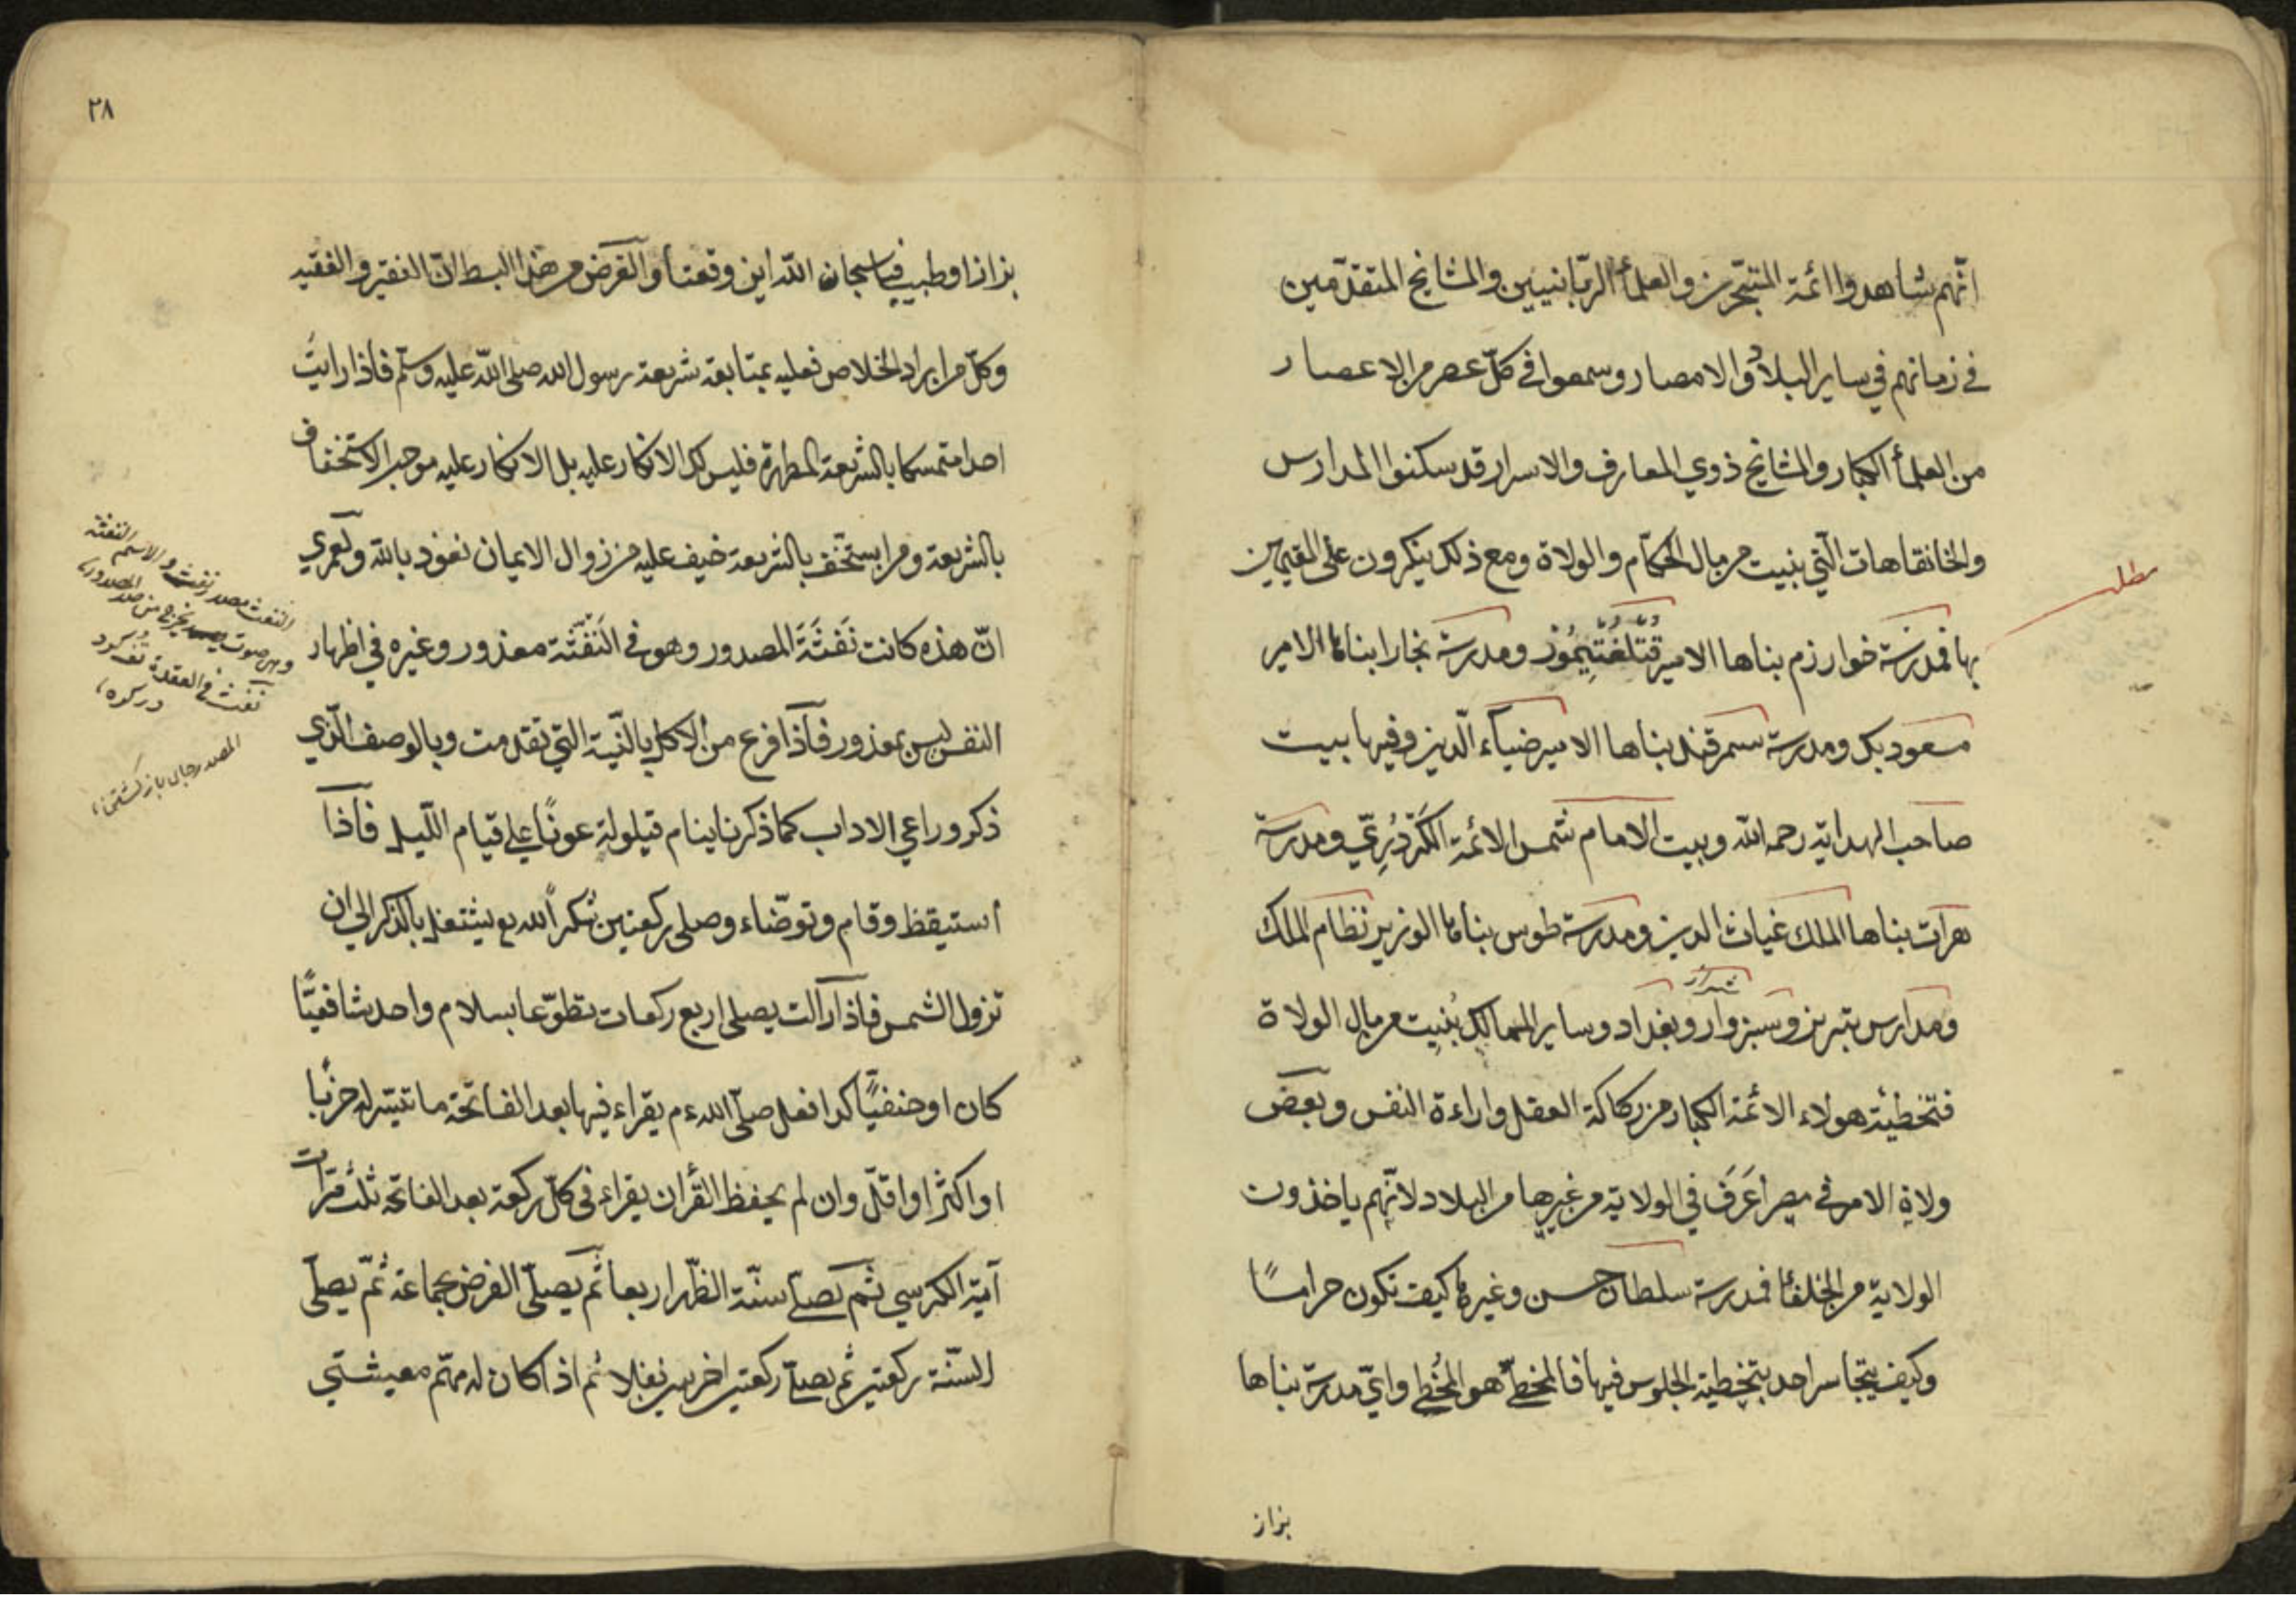 انّهم شاهدوا ائمة المتبحّرين والعلمأ الربّانيين والمشايخ المتقدّمين
في زمانهم في ساير البلاد والامصار وسمعوا في كلّ عصر من الاعصار
من العلمأ الكبار والمشايخ ذوي المعارف والاسرار قد سكنوا المدارس
والخانقاهات الّتي بنيت من مال الحكّام والولاة ومع ذلك ينكرون على المقيمين
بها فمدرسة خوارزم بناها الامير قُتلُغتِيمُوز ومدرسة بخارا بناها الامير
مسعود بك ومدرسة سمرقند بناها الامير ضياء الّدين وفيها بيت
صاحب الهداية رحمه الله وبيت الامام شمس الائمة الكَرْدَرِيّ ومدرسة
هرات بناها الملك غياث الدين ومدرسة طوس بناها الوزير نظام الملك
شيراز
ومدارس تبريز وسبزوار وبغداد وساير الممالك بُنيت من مال الولاة
فتخطيئة هولاء الائمة الكبار من ركاكة العقل واراءة النفس وبعض
ولاة الامر في مصر أعَرَف في الولاية من غيرها من البلاد لانّهم ياخذون
الولاية من الخلفأ فمدرسة سلطان حسن وغيرها كيف تكون حرامًا
وكيف يتجاسر احد بتخطية الجلوس فيها فالمخطّي هو المُخطي وايّ مدرسة بناها
بزاز
مطلب
٢٨
بزازا وطبيب فيا سبحان الله اين وقعنا والغرض من هذا البسط انّ الفقير والفقيه
وكلّ من يراد الخلاص فعليه بمتابعة شريعة رسول الله صلى الله عليه وسلّم فاذا رايت
احدا متمسكا بالشريعة المطهرة فليس لك الانكار عليه بل الانكار عليه موجب الاستخفاف
بالشريعة ومن يستخف بالشريعة خيف عليه من زوال الايمان نعوذ بالله ولعمري
انّ هذه كانت نَفْثَةَ المصدور وهو في النَفْثَة معذور وغيره في اظهار
النفس ليس بمعذور فاذا فرغ من الاكل بالنّية التي تقدمت وبالوصف الّذي
ذكر وراعي الاداب كما ذكرنا ينام قيلولة عونًا على قيام اللّيل فاذا
استيقظ وقام وتوضّاء وصلى ركعتين شكراً لله تع يشتغل بالذكر الى ان
تزول الشمس فاذا زالت يصلى اربع ركعات تطوّعا بسلام واحد شافعيًّا
كان او حنفيًّا كذا فعل صلّى الله ع م يقراء فيها بعد الفاتحة ما تيسّر له حزبًا
او اكثر او اقلّ وان لم يحفظ القرأن يقراء في كلّ ركعة بعد الفاتحة ثلث مرّات
آية الكرسي ثم يصلّي سنّة الظّهر اربعا ثم يصلّى الفرض بجماعة ثمّ يصلّى
السّنة ركعتين ثم يصلّي ركعتين اخريين نفلا ثم اذا كان له مهمّ معيشتي
النفث مصدر نفث والاسم النفثة
وهو صوت يخرج من صدر المصدور
نفث في العقدة تف كرد
در كره
المصدر جاى باز كشتن